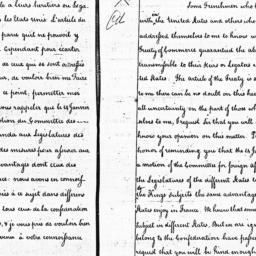 à leurs héritiers ou léga
les Etats unis. L'article du
parais qu'il ne pouvoit y
Cependant pour écarter
de ceux qui se sont adressés
eur, de vouloir bien me faire
ce point, permettez moi
vous rappeler que le 25 janvier
motion du Committée des
anda aux Législatures des
des mesures pour assurer aux
avantages dont ceux des
nce: nous avons eu connoif-
pris à ce sujet dans différens
tous ceux de la confédération
, & je vous prie de vouloir bien
venir à votre connoissance
Some Frenchmen who
with the United States and others who
addressed themselves to me to know w
Treaty of Commerce guaranteed the ab
transmissible to their Heirs or Legatees
ted States. The article of the Treaty is s
to me there can be no doubt on this hea
all uncertainty on the part of those wh
selves to me, I request Sir that you will
know your opinion on this matter. P
honor of reminding you that the 25 Ja
a motion of the Committee for foreign af
the Legislatures of the different States to
the Kings subjects the same advantage
States enjoy in France. We know that some
subject in different States, But we are ign
belong to the Confederation have pass
request that you will be kind enough